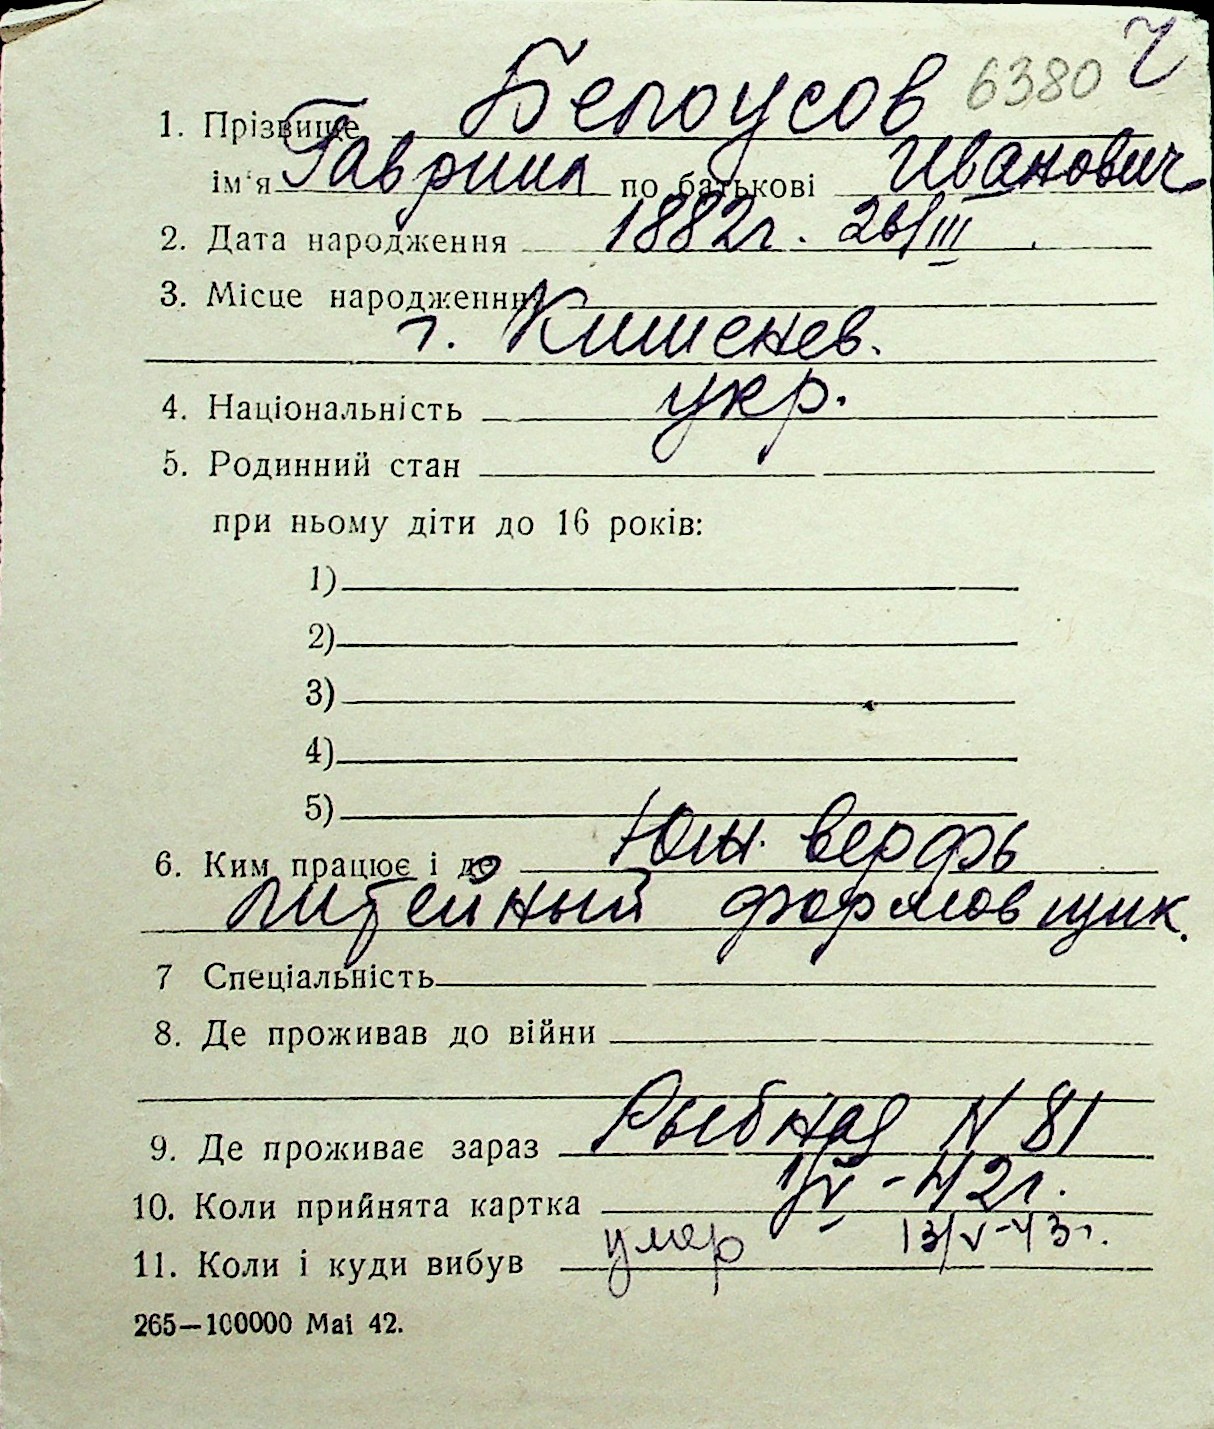 6380 Ч
1. Прізвище Белоусов
ім'я Гавриил по батькові Иванович
2. Дата народження 1882г. 26/III
3. Місце народження
г. Кишенев.
4. Національність укр.
5. Родинний стан
при ньому діти до 16 років:
1)
2)
3)
4)
5)
6. Ким працює і де Юж. верфь
литейный формовщик.
7 Спеціальність
8. Де проживав до війни
9. Де проживає зараз Рыбная N 81
10. Коли прийнята картка 1/V-42г.
11. Коли і куди вибув умер 13/V-43г.
265—100000 Mai 42.